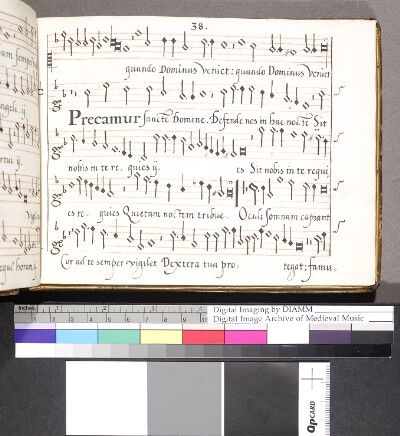 38.
quando Dominus veniet: quando Dominus veniet
Precamur sancte Domine. Defende nos in hac nocte Sit
nobis in te re. quies ij. es Sit nobis in te requi
es re- quies Quietam noctem tribue. Oculi somnum capiant
Cor ad te semper vigilet Dextera tua pro. tegat: famu.
inches
Digital Imaging by DIAMM
Digital Image Archive of Medieval Music
QPCARD